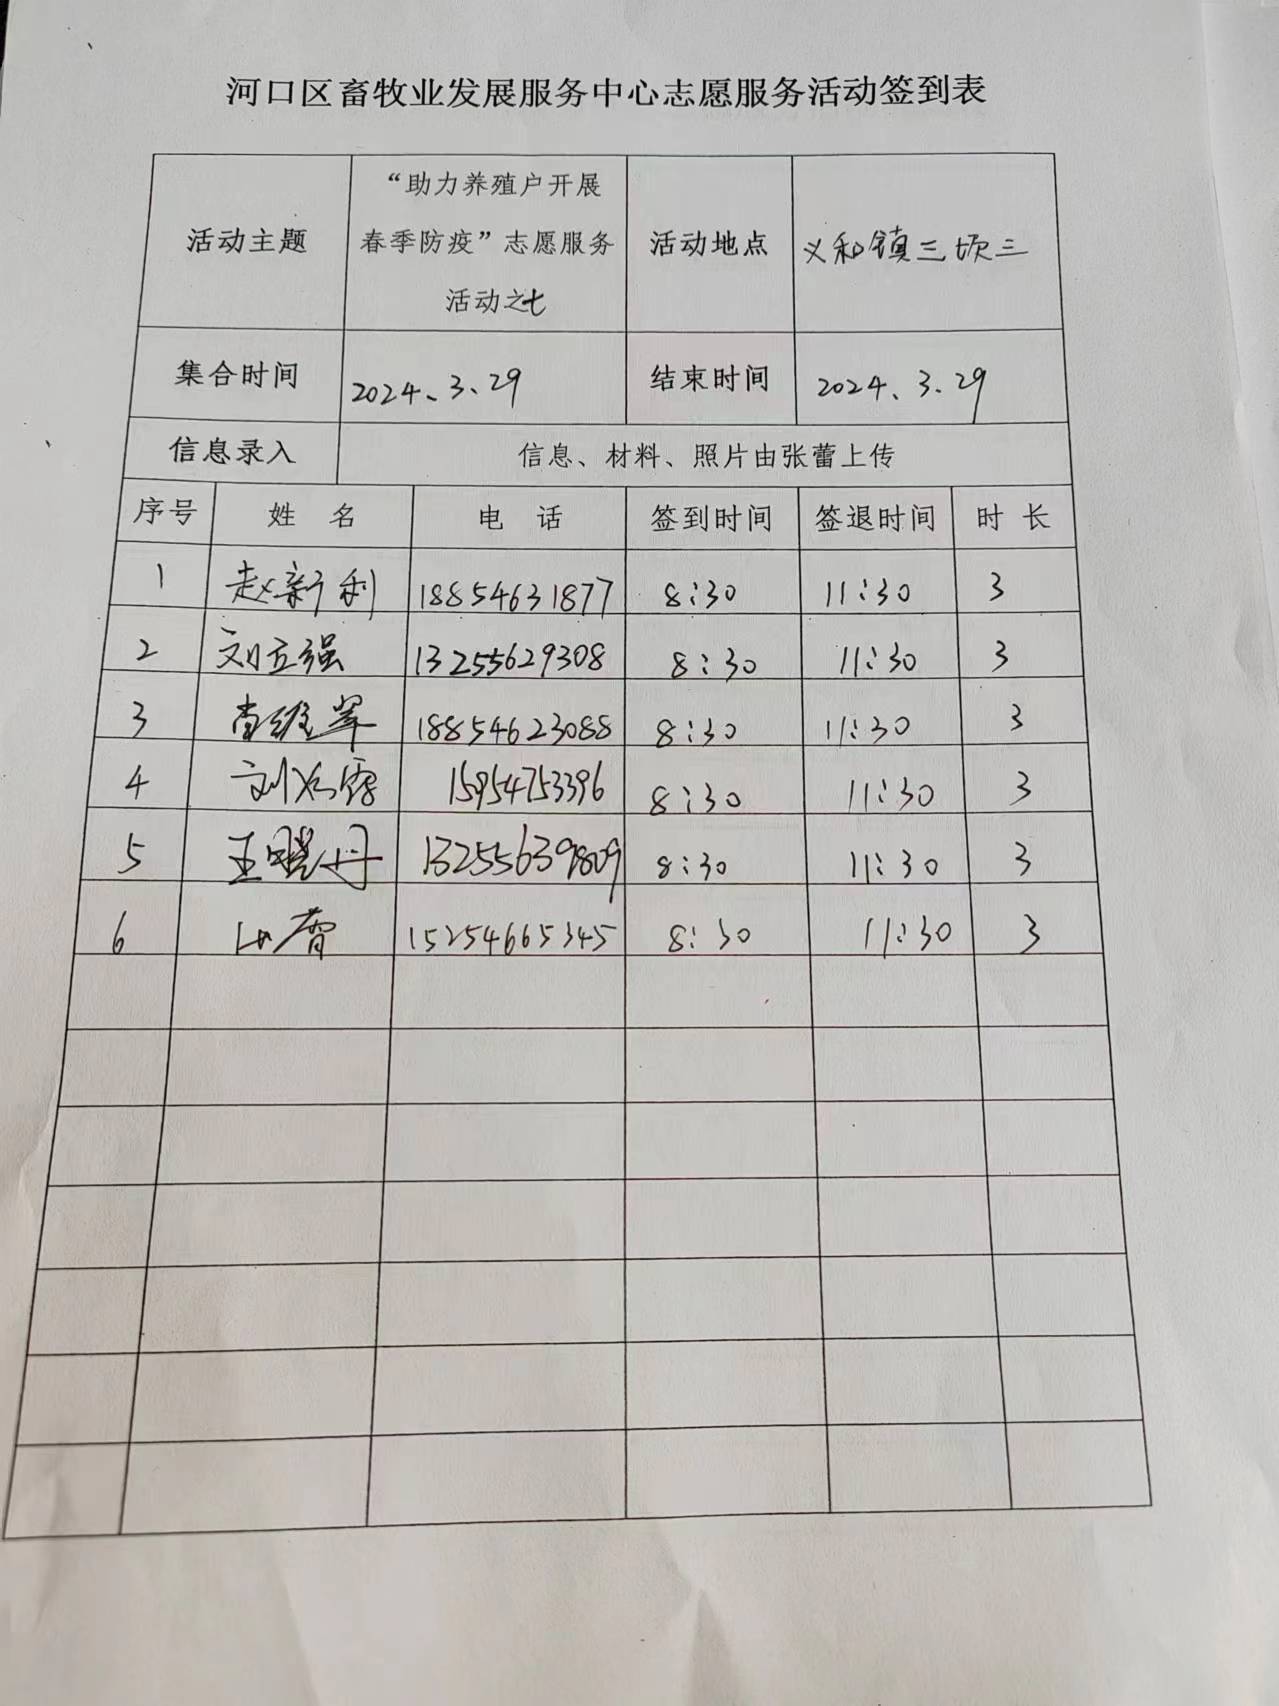 河口区畜牧业发展服务中心志愿服务活动签到表
活动主题 “助力养殖户开展春季防疫”志愿服务活动之七 活动地点 义和镇三顷三
集合时间 2024、3、29 结束时间 2024、3、29
信息录入 信息、材料、照片由张蕾上传
序号 姓 名 电 话 签到时间 签退时间 时 长
1 赵新利 18854631877 8:30 11:30 3
2 刘立强 13255629308 8:30 11:30 3
3 18854623088 8:30 11:30 3
4 15954753396 8:30 11:30 3
5 王晓丹 13255639809 8:30 11:30 3
6 15254665345 8:30 11:30 3